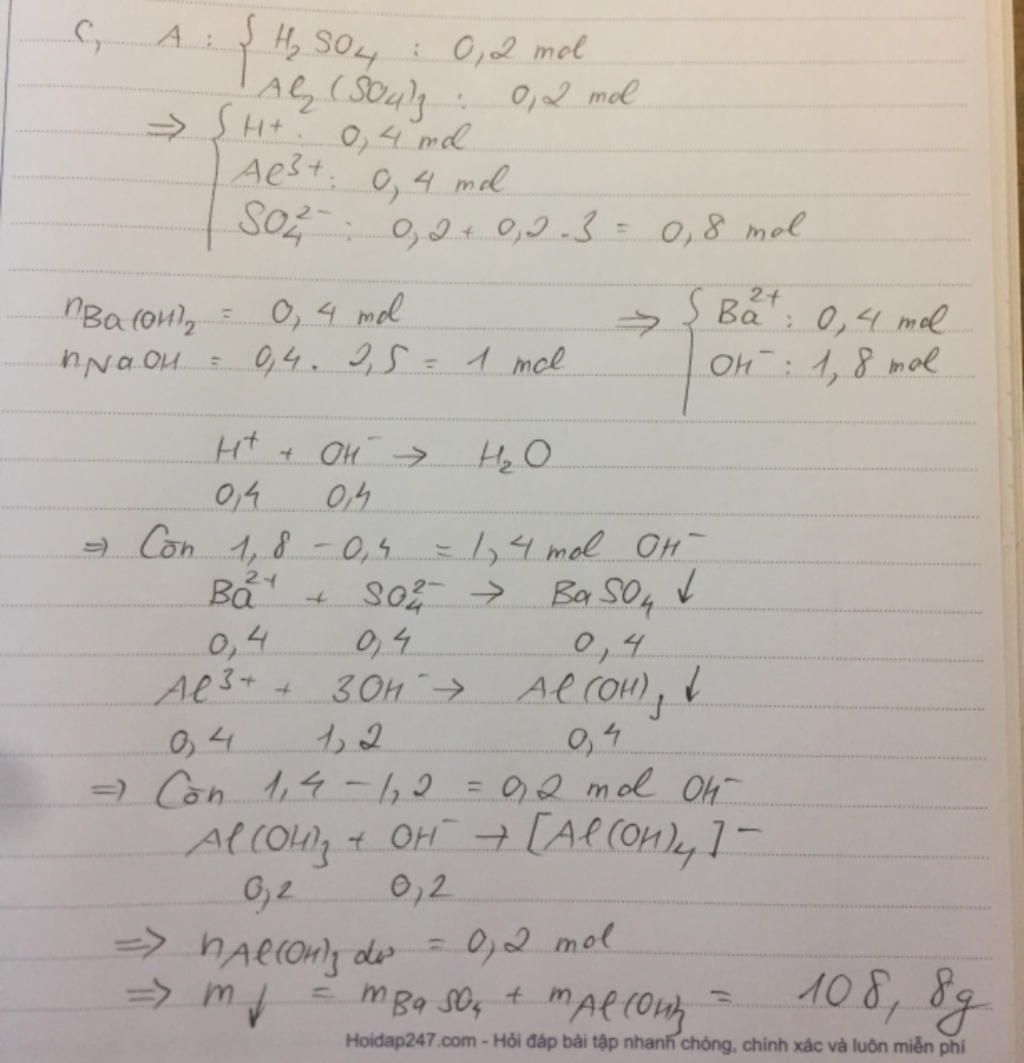 C, A : { H₂SO₄ : 0,2 mol
Al₂(SO₄)₃ : 0,2 mol
⇒ { H⁺ : 0,4 mol
Al³⁺ : 0,4 mol
SO₄²⁻ : 0,2 + 0,2.3 = 0,8 mol
nBa(OH)₂ = 0,4 mol ⇒ { Ba²⁺ : 0,4 mol
nNaOH = 0,4. 2,5 = 1 mol OH⁻ : 1,8 mol
H⁺ + OH⁻ → H₂O
0,4 0,4
⇒ Còn 1,8 - 0,4 = 1,4 mol OH⁻
Ba²⁺ + SO₄²⁻ → BaSO₄ ↓
0,4 0,4 0,4
Al³⁺ + 3OH⁻ → Al(OH)₃ ↓
0,4 1,2 0,4
⇒ Còn 1,4 - 1,2 = 0,2 mol OH⁻
Al(OH)₃ + OH⁻ → [Al(OH)₄]⁻
0,2 0,2
⇒ nAl(OH)₃ dư = 0,2 mol
⇒ m↓ = mBaSO₄ + mAl(OH)₃ = 108,8g
Hoidap247.com - Hỏi đáp bài tập nhanh chóng, chính xác và luôn miễn phí